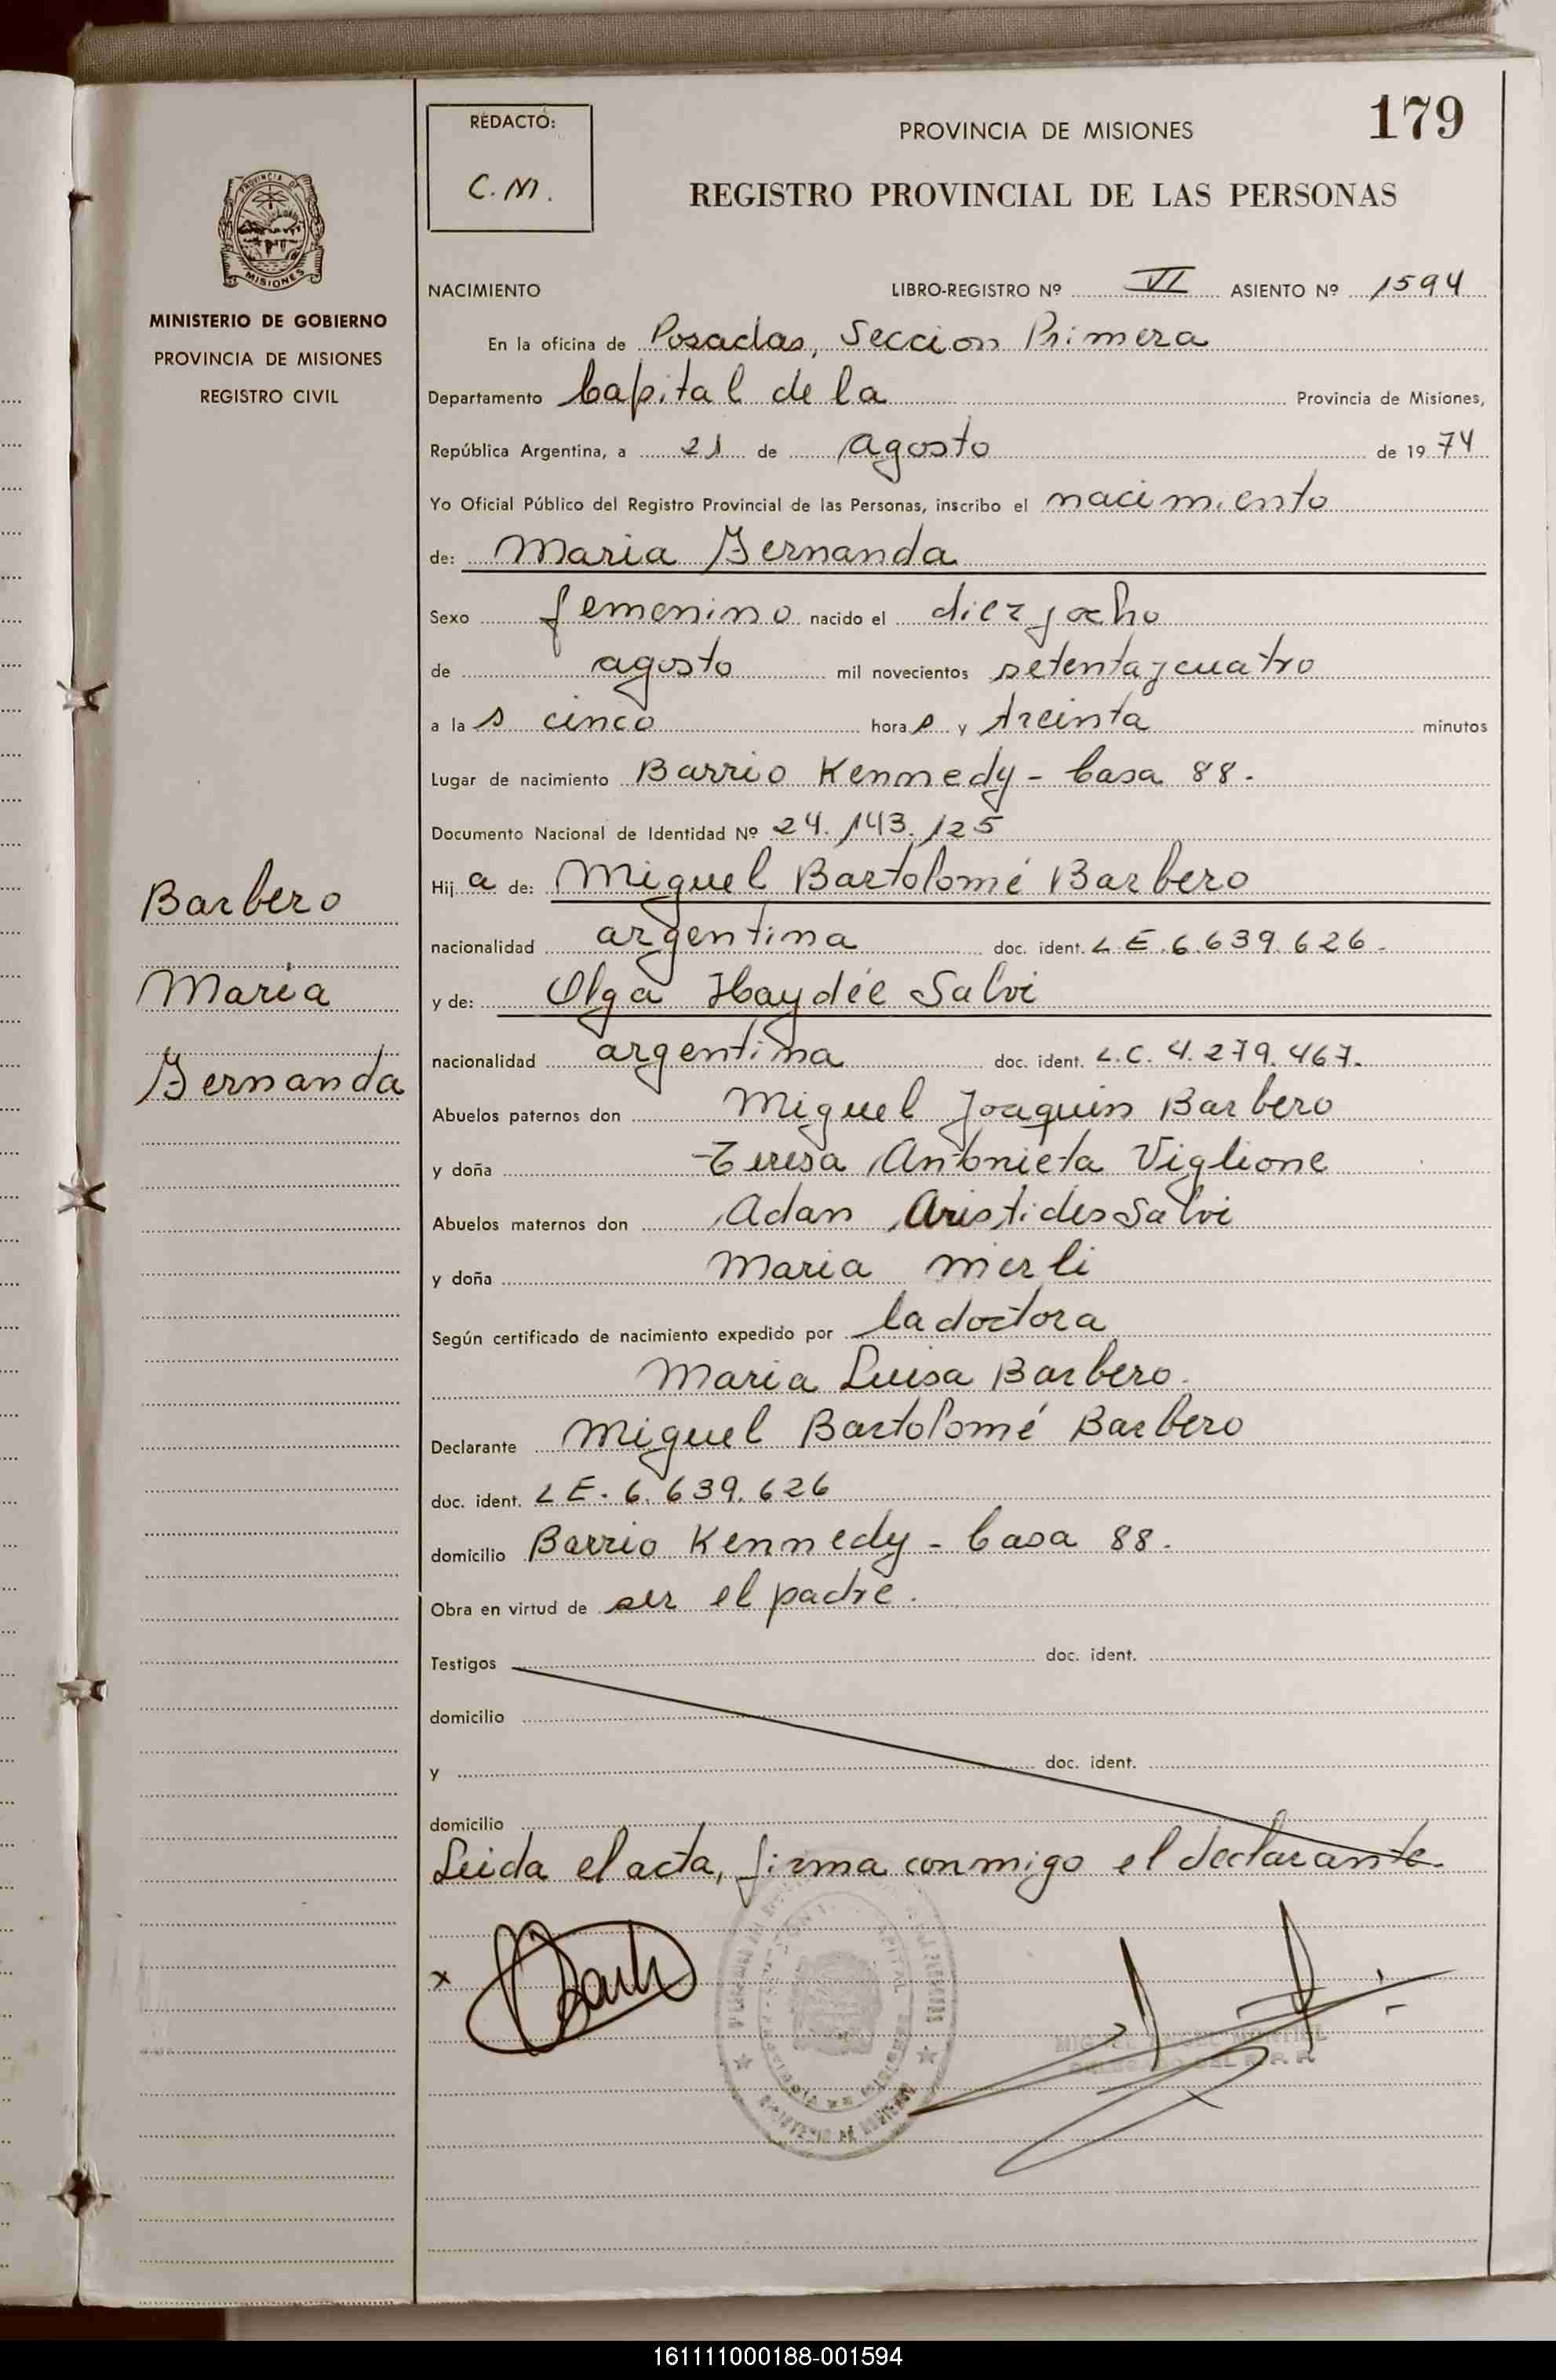 179
REDACTÓ:
C.M.
PROVINCIA DE MISIONES
REGISTRO PROVINCIAL DE LAS PERSONAS
PROVINCIA DE
MISIONES
MINISTERIO DE GOBIERNO
PROVINCIA DE MISIONES
REGISTRO CIVIL
NACIMIENTO LIBRO-REGISTRO Nº VI ASIENTO Nº 1594
En la oficina de Posadas, Seccion Primera
Departamento Capital de la Provincia de Misiones,
República Argentina, a 21 de agosto de 1974
Yo Oficial Público del Registro Provincial de las Personas, inscribo el nacimiento
de: Maria Fernanda
Sexo femenino nacido el diez y ocho
de agosto mil novecientos setenta y cuatro
a la s cinco hora s y treinta minutos
Lugar de nacimiento Barrio Kennedy - Casa 88.
Documento Nacional de Identidad Nº 24.143.125
Hij a de: Miguel Bartolomé Barbero
nacionalidad argentina doc. ident. L.E. 6.639.626.
y de: Olga Haydée Salvi
nacionalidad argentina doc. ident. L.C. 4.279.467.
Abuelos paternos don Miguel Joaquin Barbero
y doña Teresa Antonieta Viglione
Abuelos maternos don Adan Aristides Salvi
y doña Maria Merli
Según certificado de nacimiento expedido por la doctora
Maria Luisa Barbero.
Declarante Miguel Bartolomé Barbero
doc. ident. L E. 6.639.626
domicilio Barrio Kennedy - Casa 88.
Obra en virtud de ser el padre.
Testigos doc. ident.
domicilio
y doc. ident.
domicilio
Leida el acta, firma conmigo el declarante.
x
Barbero
Maria
Fernanda
161111000188-001594